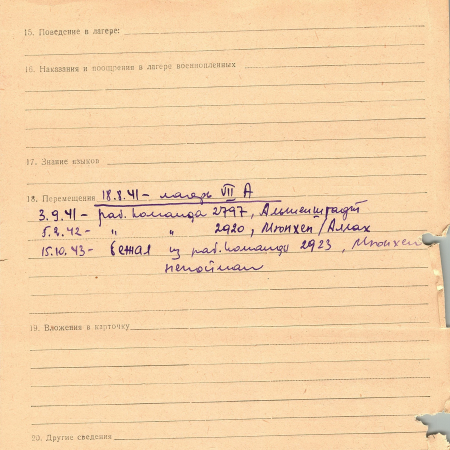 15. Поведение в лагере:
16. Наказания и поощрения в лагере военнопленных
17. Знание языков
18. Перемещения 18.8.41 - лагерь VII А
3.9.41 - раб. команда 2797, Альтенштадт
5.2.42 - " " 2920, Мюнхен / Аллах
15.10.43 - бежал из раб. команды 2923, Мюнхен
непойман
19. Вложения в карточку
20. Другие сведения